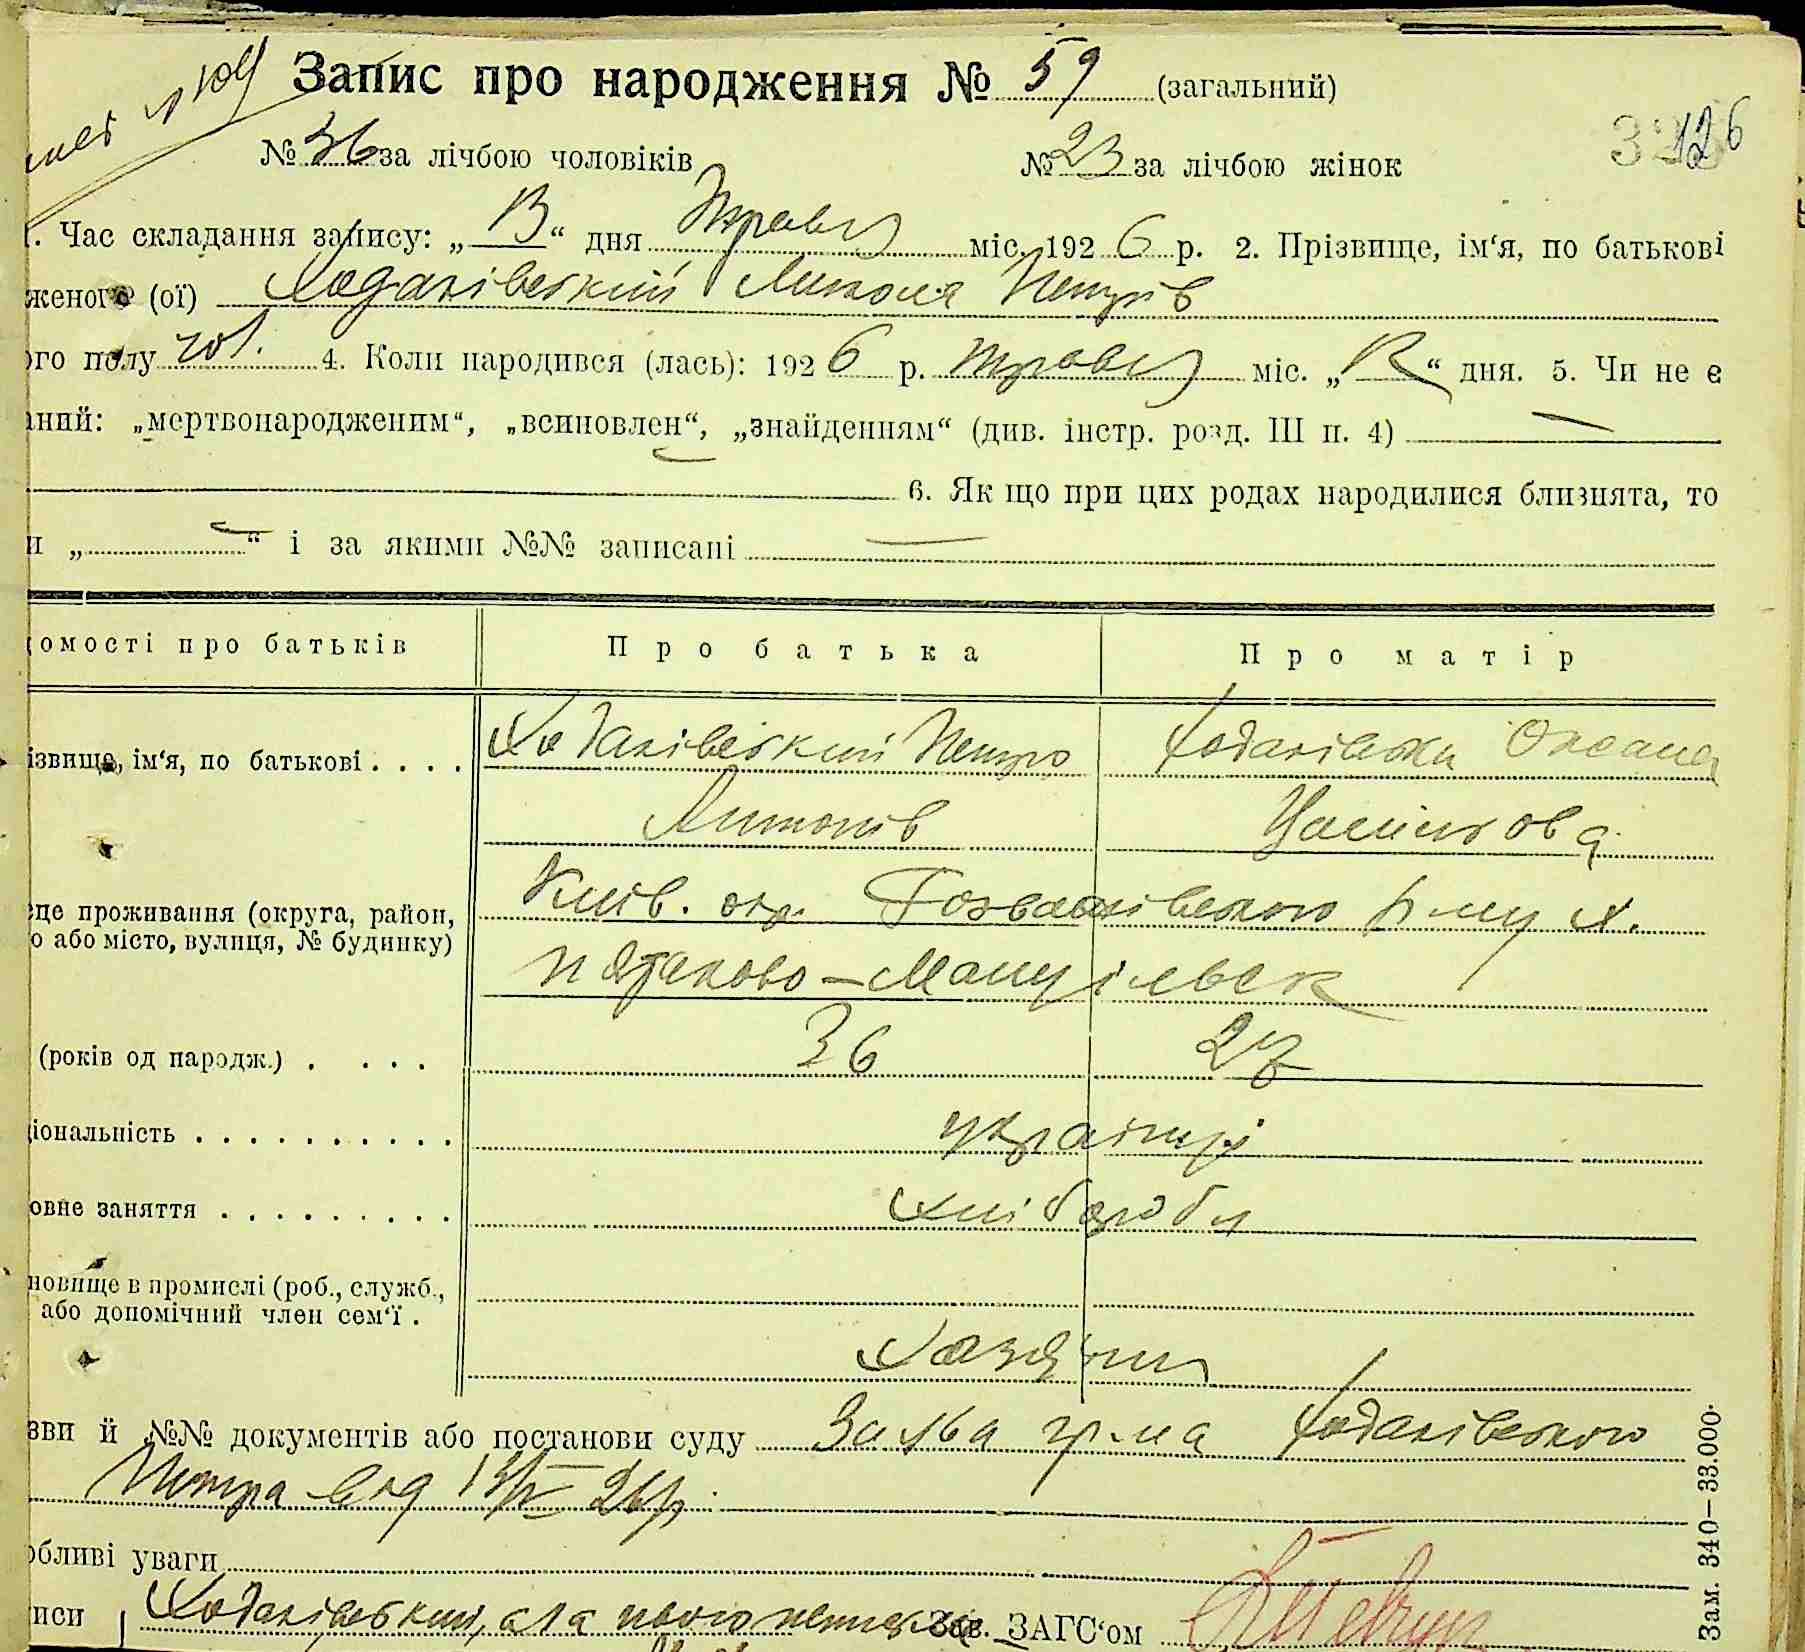 Запис про народження № 59 (загальний)
№ 36 за лічбою чоловіків № 23 за лічбою жінок
126
. Час складання запису: „13“ дня Травня міс. 1926 р. 2. Прізвище, ім‘я, по батькові
женого (ої) Ходаківський Микола Петрів
ого полу чол. 4. Коли народився (лась): 1926 р. травня міс. „12“ дня. 5. Чи не є
аний: „мертвонародженим“, „всиновлен“, „знайденням“ (див. інстр. розд. III п. 4) —
6. Як що при цих родах народилися близнята, то
и „—“ і за якими №№ записані —
домості про батьків Про батька Про матір
ізвище, ім‘я, по батькові . . . . Ходаківський Петро Ходаківська Оксана
Антонів
це проживання (округа, район, Київ. окр. р-ну х.
о або місто, вулиця, № будинку) Пятаково-Мануільськ
(років од народж.) . . . . 36 27
ціональність . . . . . . . . . . українці
овне заняття . . . . . . . . . хлібороби
новище в промислі (роб., служб.,
або допомічний член сем‘ї .
Хазяїни
зви й №№ документів або постанови суду Заява гр-на Ходаківського
Петра від 13/V 26 р.
обливі уваги
иси Ходаківський, а за Зав. ЗАГС‘ом
Зам. 340—33.000.